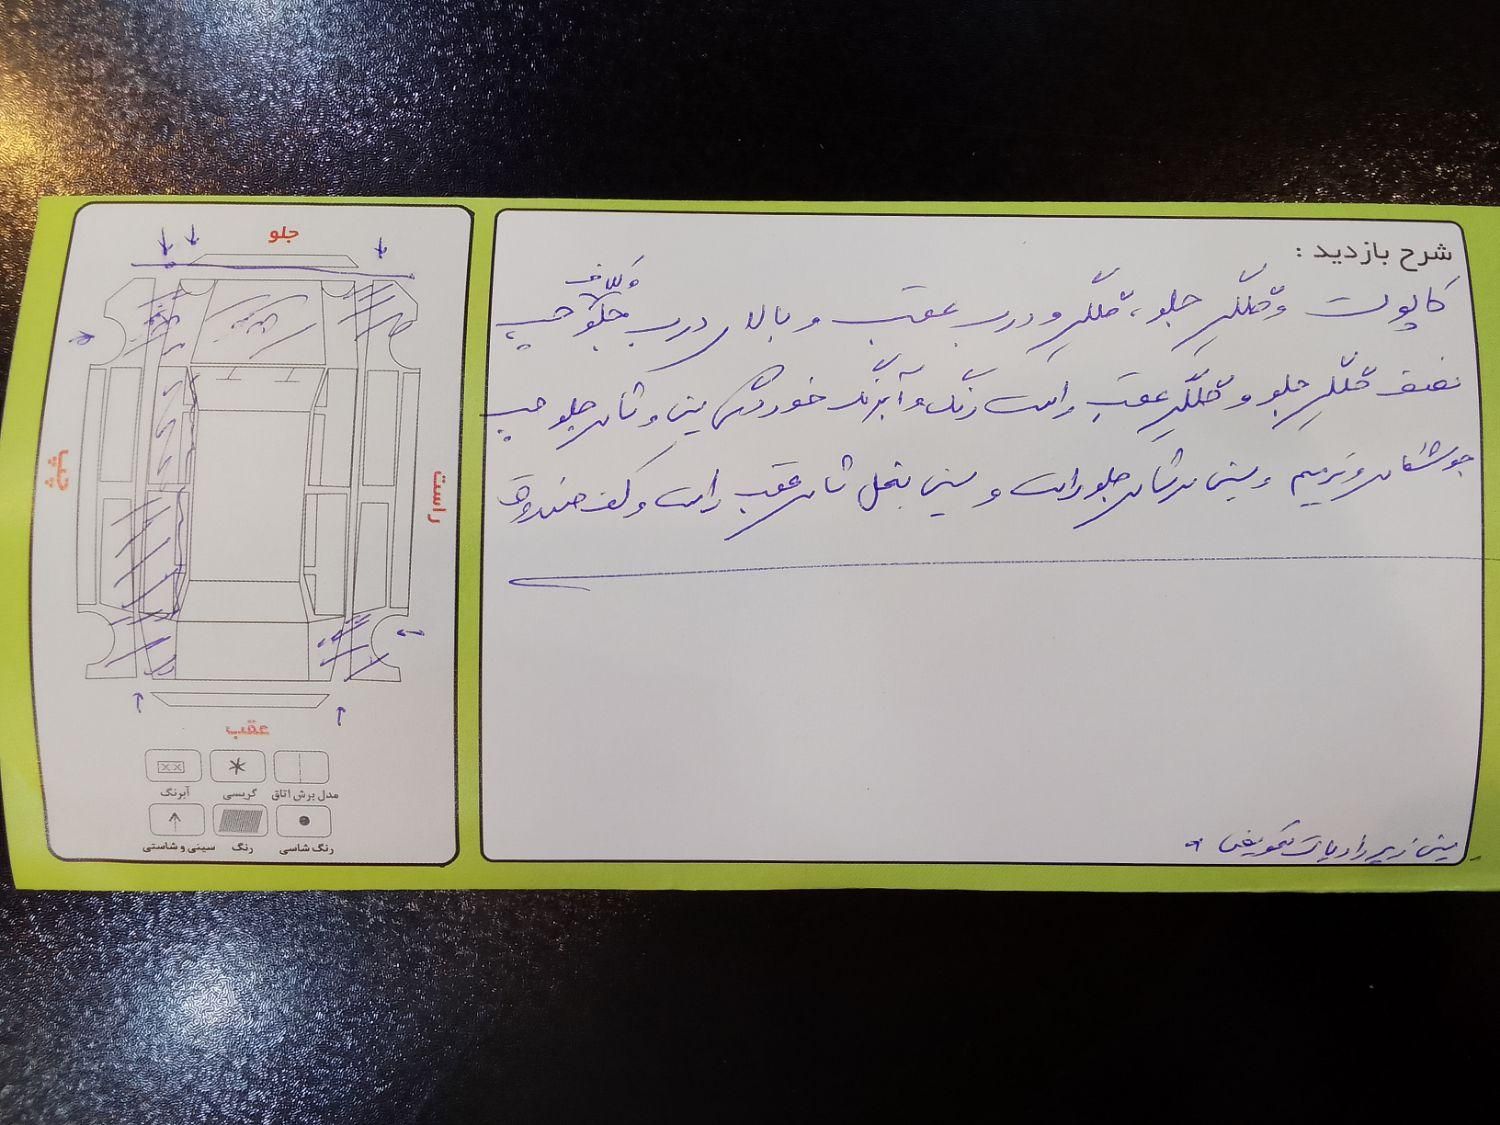 شرح بازدید :
کاپوت و گلگیر جلو، گلگیر و درب عقب و بالای درب جلو چپ
نصف گلگیر جلو و گلگیر عقب راست رنگ و آبرنگ خوردگی سینی و شاسی جلو چپ
جوشکاری و ترمیم و سینی سرشاسی جلو راست و سینی بغل شاسی عقب راست و کف صندوق
سینی زیر رادیات تعویض
جلو
چپ
راست
عقب
مدل برش اتاق
گریسی
آبرنگ
رنگ شاسی
رنگ
سینی و شاستی